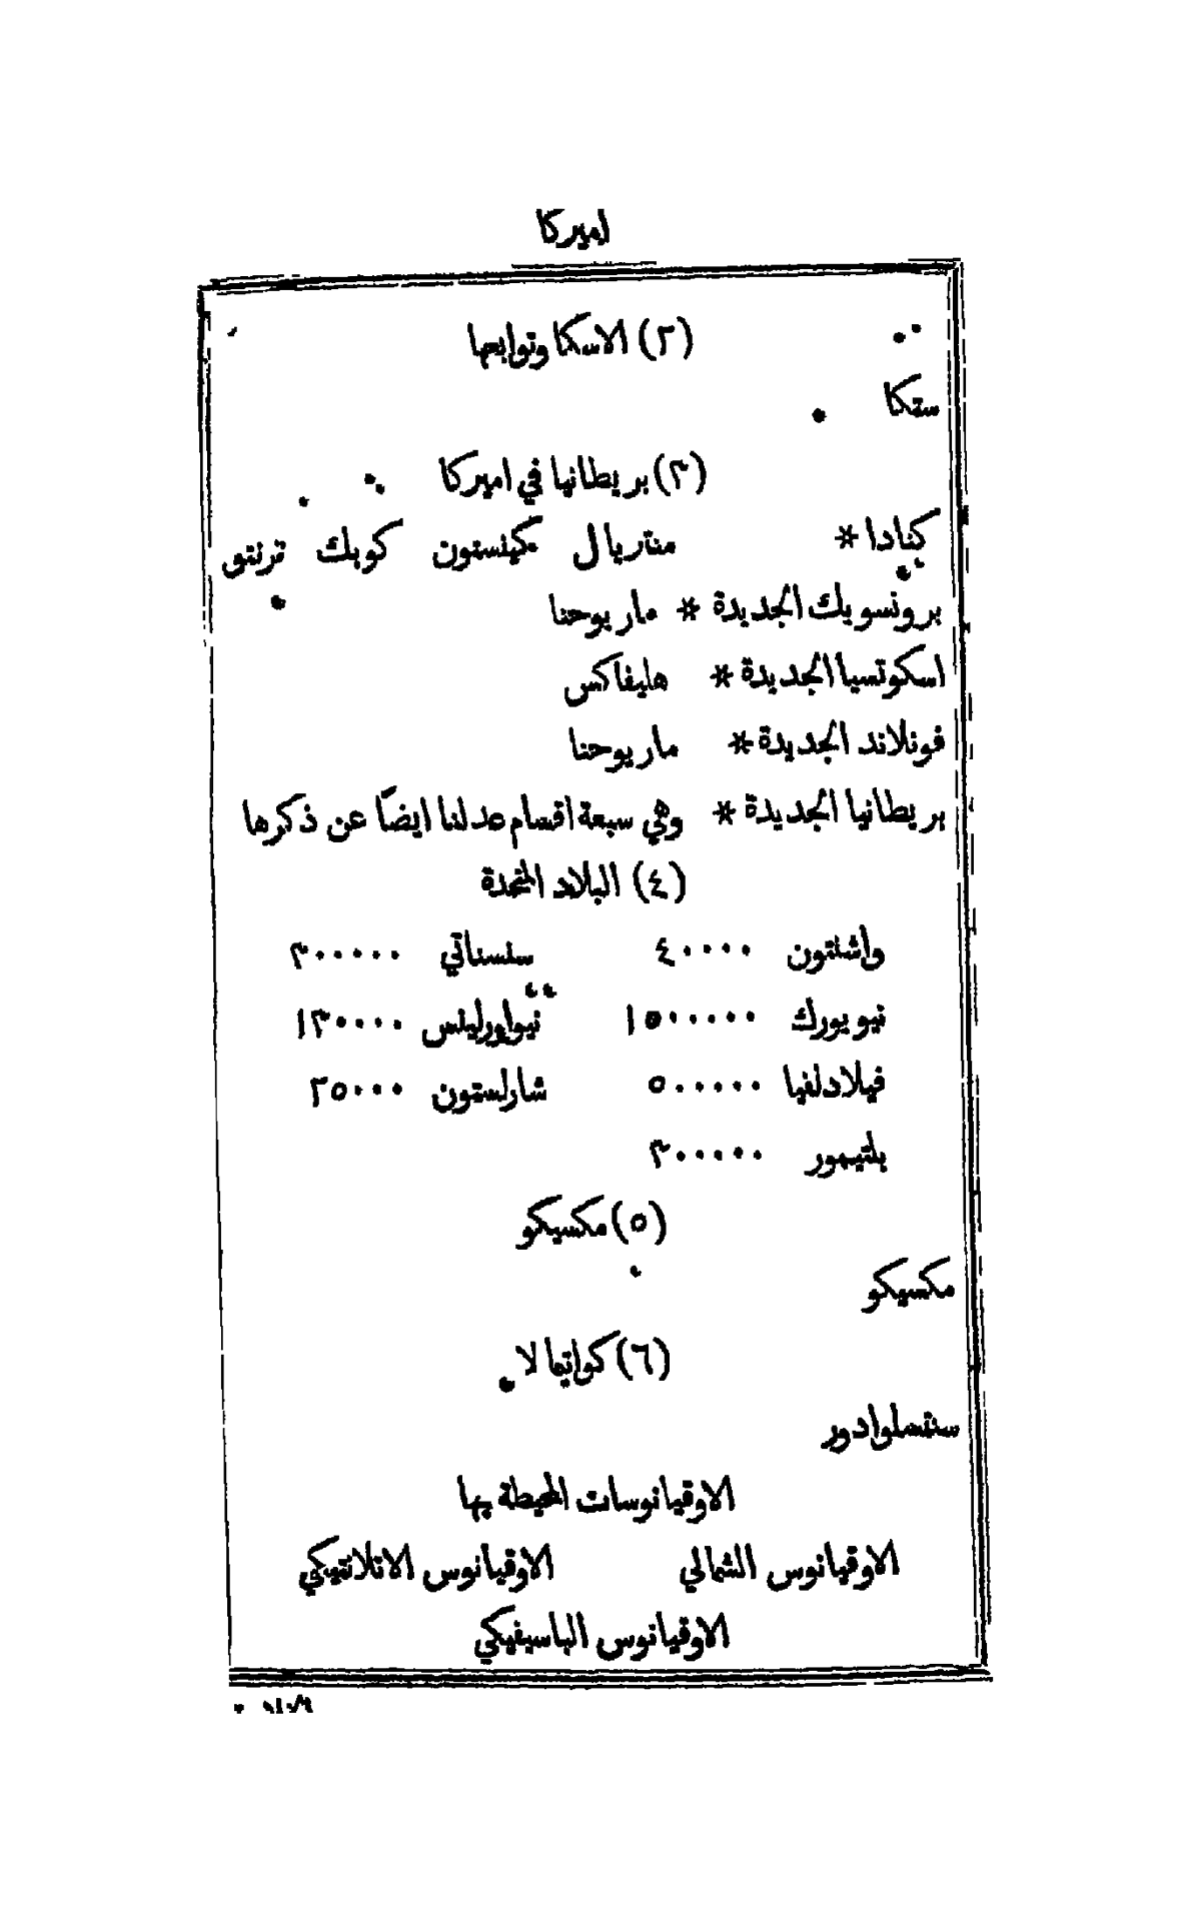 اميركا
(٢) الاسكا وتوابعها
ستكا
(٣) بريطانيا في اميركا
كنادا * منتريال كينستون كوبك ترنتو
برونسويك الجديدة * ماريوحنا
اسكوتسيا الجديدة * هليفاكس
فونلاند الجديدة * ماريوحنا
بريطانيا الجديدة * وهي سبعة اقسام عدلنا ايضًا عن ذكرها
(٤) البلاد المتحدة
واشنتون ٤٠٠٠٠ سنسناتي ٣٠٠٠٠٠
نيويورك ١٥٠٠٠٠٠ نيواورلينس ١٣٠٠٠٠
فيلادلفيا ٥٠٠٠٠٠ شارلستون ٢٥٠٠٠
بلتيمور ٣٠٠٠٠٠
(٥) مكسيكو
مكسيكو
(٦) كواتيمالا
سنتسلوادور
الاوقيانوسات المحيطة بها
الاوقيانوس الشمالي الاوقيانوس الاتلانتيكي
الاوقيانوس الباسيفيكي